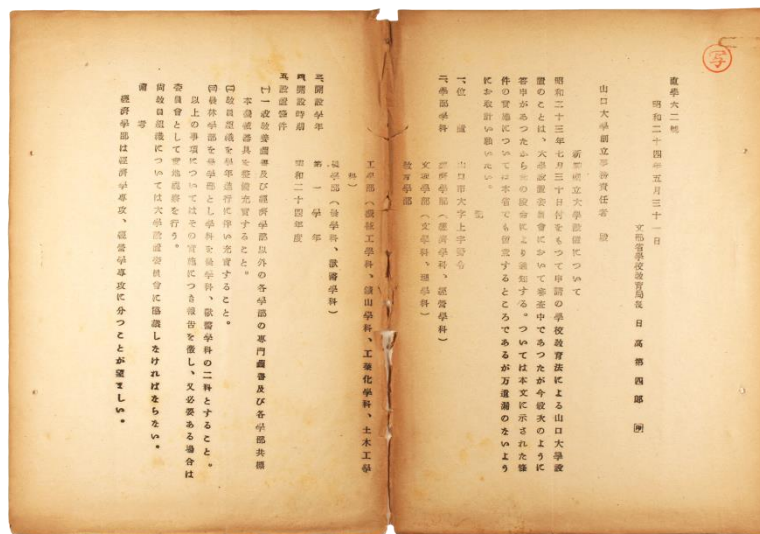 写
昭和二十四年五月三十一日
文部省學校敎育局長 日高第四郎 印
山口大學創立事務責任者 殿
新制國立大學設置について
昭和二十三年七月三十日付をもつて申請の學校敎育法による山口大學設
置のことは、大學設置委員會において審査中であつたが今般次のように
答申があつたから通知する。ついては本文に示された條
件の實施については本省でも留意するところであるが万遺漏のないよう
にお取計い願いたい。
記
一、位置 山口市大字上宇野令
二、學部學科
經濟學部(經濟學科、經營學科)
文理學部(文學科、理學科)
敎育學部
工學部(機械工學科、鑛山學科、工業化學科、土木工學
科)
農學部(農學科、獸醫學科)
三、開設學年 第一學年
四、開設時期 昭和二十四年度
五、設置條件
(一)一般敎養圖書及び經濟學部以外の各學部の專門圖書及び各學部共標
本、機械器具を整備充實すること。
(二)敎員組織を學年進行に伴い充實すること。
(三)農林學部を農學部とし學科を農學科、獸醫學科の二科とすること。
以上の事項についてはその實施につき報告を徵し、又必要ある場合は
委員會として實地視察を行う。
尙敎員組織については大學設置委員會に協議しなければならない。
備考
經濟學部は經濟學專攻、經營學專攻に分つことが望ましい。